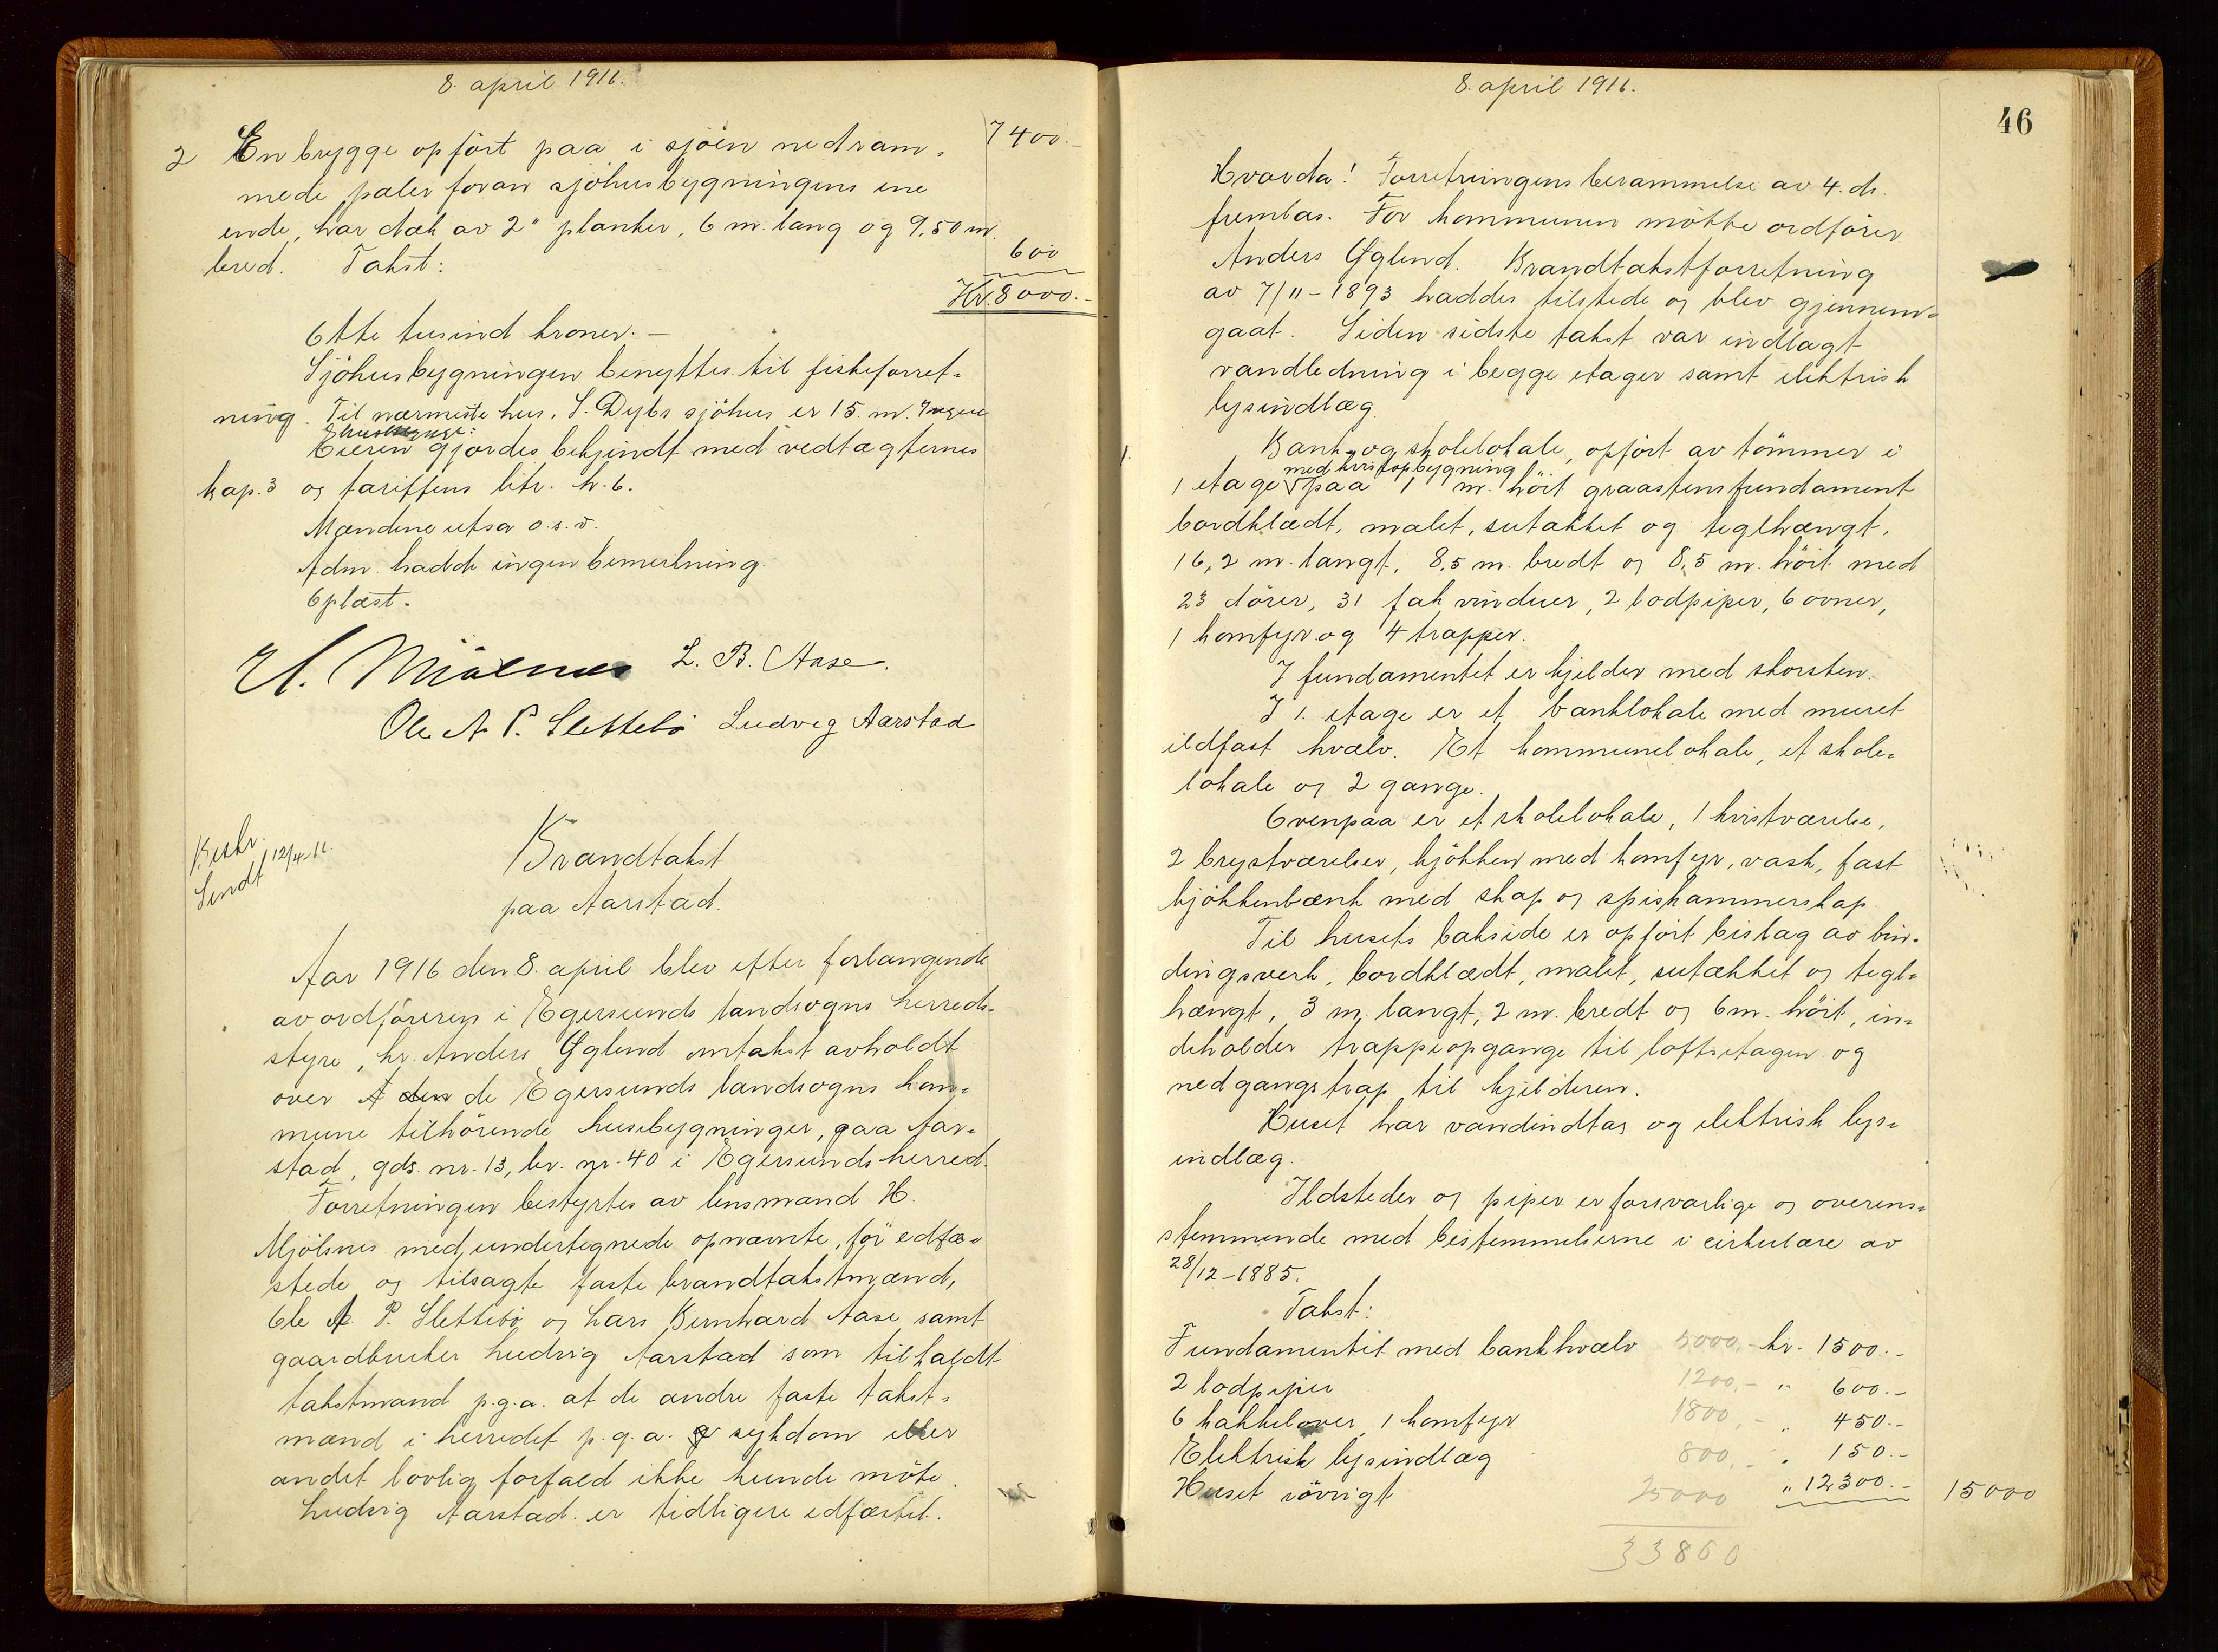 8. april 1916.
7400.-
2 En brygge opført paa i sjöen nedram=
mede pæler foran sjöhusbygningens ene
ende, har dæk av 2" planker, 6 m. lang og 9,50 m.
bred. Takst: 600
Kr. 8000.-
Otte tusind kroner. -
Sjöhusbygningen benyttes til fiskeforret=
ning. Til nærmeste hus, S. Dybs sjöhus er 15. m. Ingen
Eieren gjordes bekjendt med vedtægternes
kap. 3 og tariffens litr. h. 6.
Mændene utsa o.s.v.
Adm. hadde ingen bemerkning.
Oplæst.
H. Mjölsnes L. B. Aase.
Ole A. P. Slettebö Ludvig Aarstad
Beskr.
Sendt 12/4-16.
Brandtakst
paa Aarstad.
Aar 1916 den 8. april blev efter forlangende
av ordföreren i Egersunds landsogns herreds=
styre, hr. Anders Øglend omtakst avholdt
over de Egersunds landsogns kom=
mune tilhörende husebygninger, paa Aar=
stad, gds. nr. 13, br. nr. 40 i Egersunds herred.
Forretningen bestyrtes av lensmand H.
Mjölsnes med undertegnede opnævnte, för edfæ=
stede og tilsagte faste brandtakstmænd,
Ole A. P. Slettebö og Lars Bernhard Aase samt
gaardbruker Ludvig Aarstad som tilkaldt
takstmand p.g.a. at de andre faste takst=
mænd i herredet p.g.a. sykdom eller
andet lovlig forfald ikke kunde möte.
Ludvig Aarstad er tidligere edfæstet.
8. april 1916.
46
Hvorda! Forretningens berammelse av 4. ds.
fremlas. For kommunen mötte ordförer
Anders Øglend. Brandtakstforretning
av 7/11-1893 haddes tilstede og blev gjennem=
gaat. Siden sidste takst var indlagt
vandledning i begge etager samt elektrisk
lysindlæg.
1. Bank- og skolelokale, opfört av tömmer i
med kvistopbygning
1 etage paa 1 m. höit graastensfundament
bordklædt, malet, sutækket og teglhængt,
16,2 m. langt, 8,5 m. bredt og 8,5 m. höit med
23 dörer, 31 fak vinduer, 2 lodpiper, 6 ovner,
1 komfyr og 4 trapper.
I fundamentet er kjelder med skorsten.
I 1. etage er et banklokale med muret
ildfast hvælv. Et kommunelokale, et skole=
lokale og 2 gange.
Ovenpaa er et skolelokale, 1 kvistværelse,
2 brystværelser, kjökken med komfyr, vask, fast
kjökkenbænk med skap og spiskammerskap.
Til husets bakside er opfört bislag av bin=
dingsverk, bordklædt, malet, sutækket og tegl=
hængt, 3 m. langt, 2 m. bredt og 6 m. höit, in=
deholder trappeopgange til loftsetagen og
nedgangstrap til kjelderen.
Huset har vandindtag og elektrisk lys=
indlæg.
Ildsteder og piper er forsvarlige og overens=
stemmende med bestemmelserne i cirkulære av
28/12-1885.
Takst:
Fundamentet med bankhvælv 5000,- kr. 1500.-
2 lodpiper 1200,- " 600.-
6 kakkelovner, 1 komfyr 1800,- " 450.-
Elektrisk lysindlæg 800,- " 150.-
Huset iövrigt 25000 " 12,300.- 15000
33800